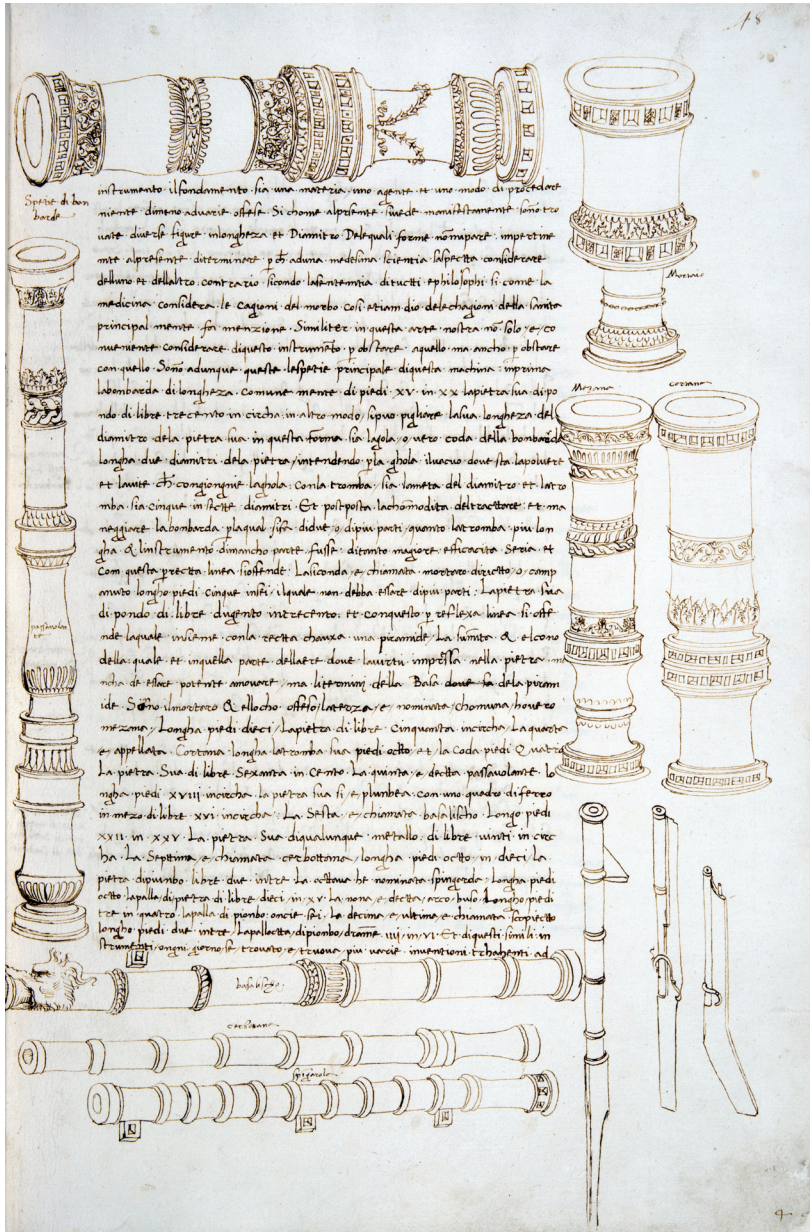 48
Spetie di bon
barde
instrumento · il fondamento · sia una materia / uno agente et uno modo di procedare
niente dimeno advarie offese · Si chome alpresente sivede manifestamente sono tro
vate diverse figure inlongheza et Diamitro Delequali forme nomipare impertine
nte alpresente diterminare p ch aduna medesina scientia saspecta considerare
delluno et dellaltro contrario sicondo lasententia ditucti ephilosophi si come la
medicina considera le cagioni del morbo cosi etiam dio delechagioni della sanita
principal mente fa menzione · Similiter in questa arte nostra no solo e co
nveniente considerare diquesto instrumento p obstare aquello ma ancho p obstare
con quello · Sono adunque queste lespetie principale diquesta machina · inprima
labombarda di longheza Comune mente di piedi · XV · in XX lapietra sua di po
ndo di libre trecento in circha in altro modo sipuo pigliare lasua longheza del
diamitro dela pietra sua in questa forma sia lagola o vero coda della bonbarda
longha due diamitri dela pietra / intendendo p la ghola ilvacuo dove sta lapolvere
et lavite ch congiongnie laghola conla tromba sia lameta del diamitro et latro
mba sia cinque in secte diamitri Et postposta lachomodita deltractare et ma
neggiare labonbarda plaqual sifa didue o dipiu parti quanto latromba piu lon
gha & linstrumento dimancho parte fusse ditanto magiore efficacita Seria et
Com questa p recta linea sioffende Lasiconda e chiamata mortaro diricto o camp
anuto longho piedi cinque insei ilquale non debba essare dipiu parti Lapietra sua
di pondo di libre dugento intrecento et conquesto p reflexa linea si offe
nde laquale insieme conla recta chauxa una piramide La sumita & elcono
della quale et inquella parte dellaere dove lavirtu impressa nella pietra ma
ncha de essare potente amovare ma litermini della Basa dove fa dela piram
ide Sono ilmortaro & ellocho offeso / laterza e nominata chomuna hovero
mezana / Longha piedi dieci / Lapietra di libre Cinquanta incircha La quarta
e appellata Cortana longha latromba sua piedi octo et la Coda piedi Quatro
La pietra Sua di libre Sexanta in Cento La quinta e decta passavolante lo
ngha piedi XVIII incircha la pietra sua si e plunbea con uno quadro diferro
in mezo di libre XVI incircha La Sesta e chiamata basalischo Longo piedi
XXII in XXV La pietra Sua diqualunque metallo di libre vinti in circ
ha La Septtima e chiamata cerbottana longha piedi octo in dieci La
pietra dipiunbo libre due intre La octava he nominata spingarda Longha piedi
octo lapalla di pietra di libre dieci in XV La nona e decta arco buso Longho piedi
tre in quatro lapalla di pionbo oncie sei La decima e ultima e chiamata scopietto
longho piedi due intre Lapallocta dipionbo dramme IIII in VI Et diquesti simili in
strumenti ongni giorno se trovato e truova piu varie inventioni trahenti ad
Mortaio
Mezana
cortana
passavolan
te
basalisco
cerbotana
spigarola